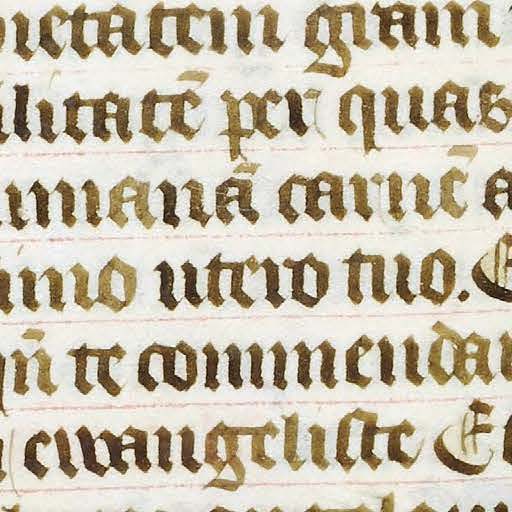 pietatem gram
ilitatē per quas
umanā carnē a
imo utero tuo. E
qn̄ te commendau
ewangeliste Et